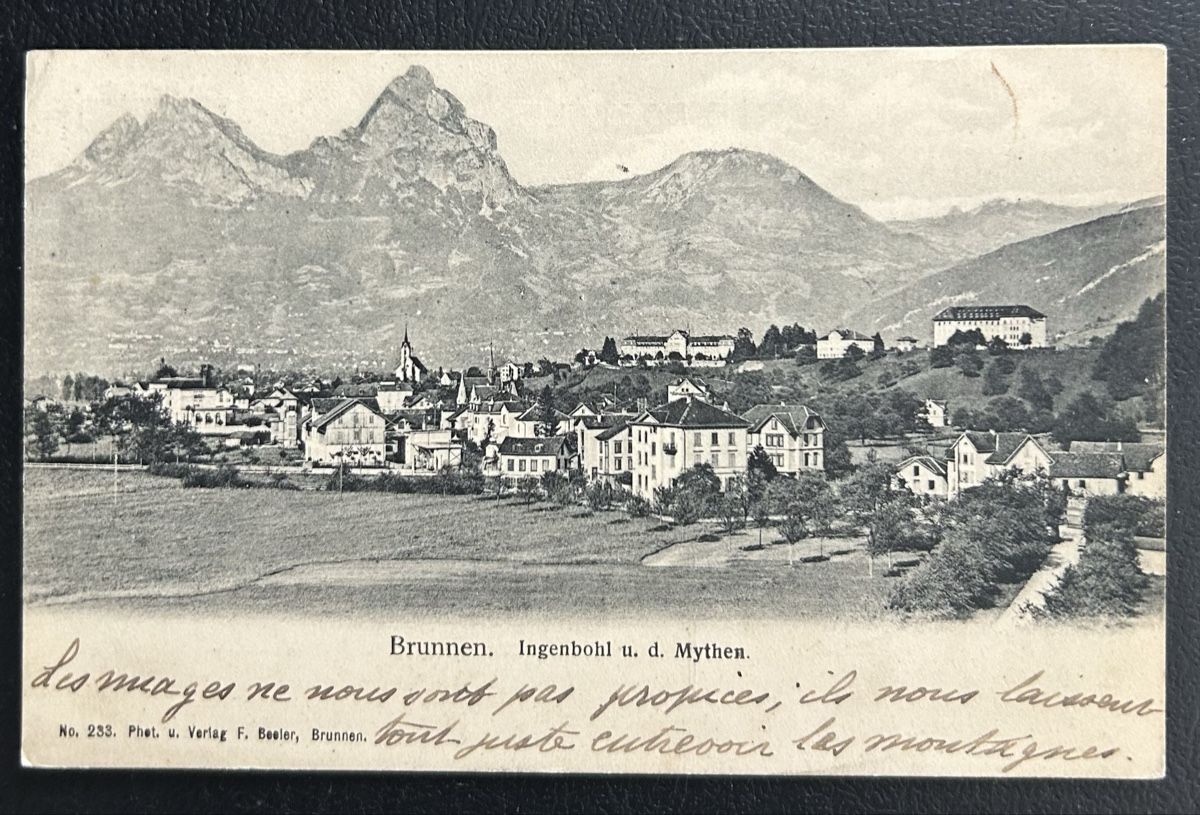 Brunnen. Ingenbohl u. d. Mythen.
Les nuages ne nous sont pas propices, ils nous laissent
No. 233. Phot. u. Verlag F. Beeler, Brunnen.
tout juste entrevoir les montagnes.